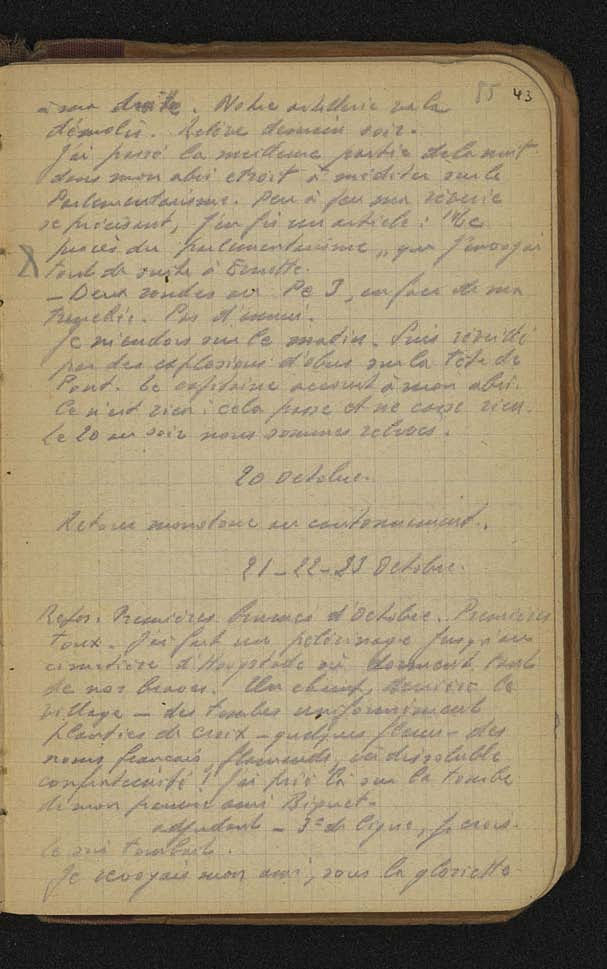 85 43
à ma droite. Notre artillerie va la
démolir. Relève demain soir.
J'ai passé la meilleure partie de la nuit
dans mon abri étroit à méditer sur le
Parlementarisme. Peu à peu ma rêverie
se précisant, j'en fis un article : "Le
procès du parlementarisme" que j'envoyai
tout de suite à
- Deux rondes au P 3, en face de ma
tranchée. Pas d'ennui.
Je m'endors sur le matin. Suis réveillé
par des explosions d'obus sur la Tête de
Pont. Le capitaine accourt à mon abri.
Ce n'est rien : cela passe et ne casse rien.
Le 20 au soir nous sommes relevés.
20 Octobre.
Retour monotone au cantonnement.
21-22-23 Octobre.
Repos. Premières brumes d'Octobre. Premières
toux. J'ai fait un pèlerinage jusqu'au
cimetière d'Hoogstade où dorment tant
de nos braves. Un champ, derrière le
village - des tombes uniformément
plantées de croix - quelques fleurs - des
noms français, flamands, indissoluble
confraternité ! J'ai prié là sur la tombe
de mon pauvre ami
adjudant - 3e de ligne, je crois.
Le soir tombait.
Je revoyais mon ami, sous la gloriette